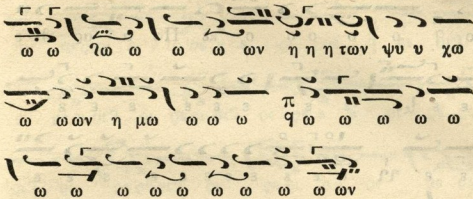 ω ω ζω ω ω ω ων η η η των ψυ υ χω
ω ω ων η μω ω ω ω π q ω ω ω ω ω
ω ω ω ω ω ω ω ω ων